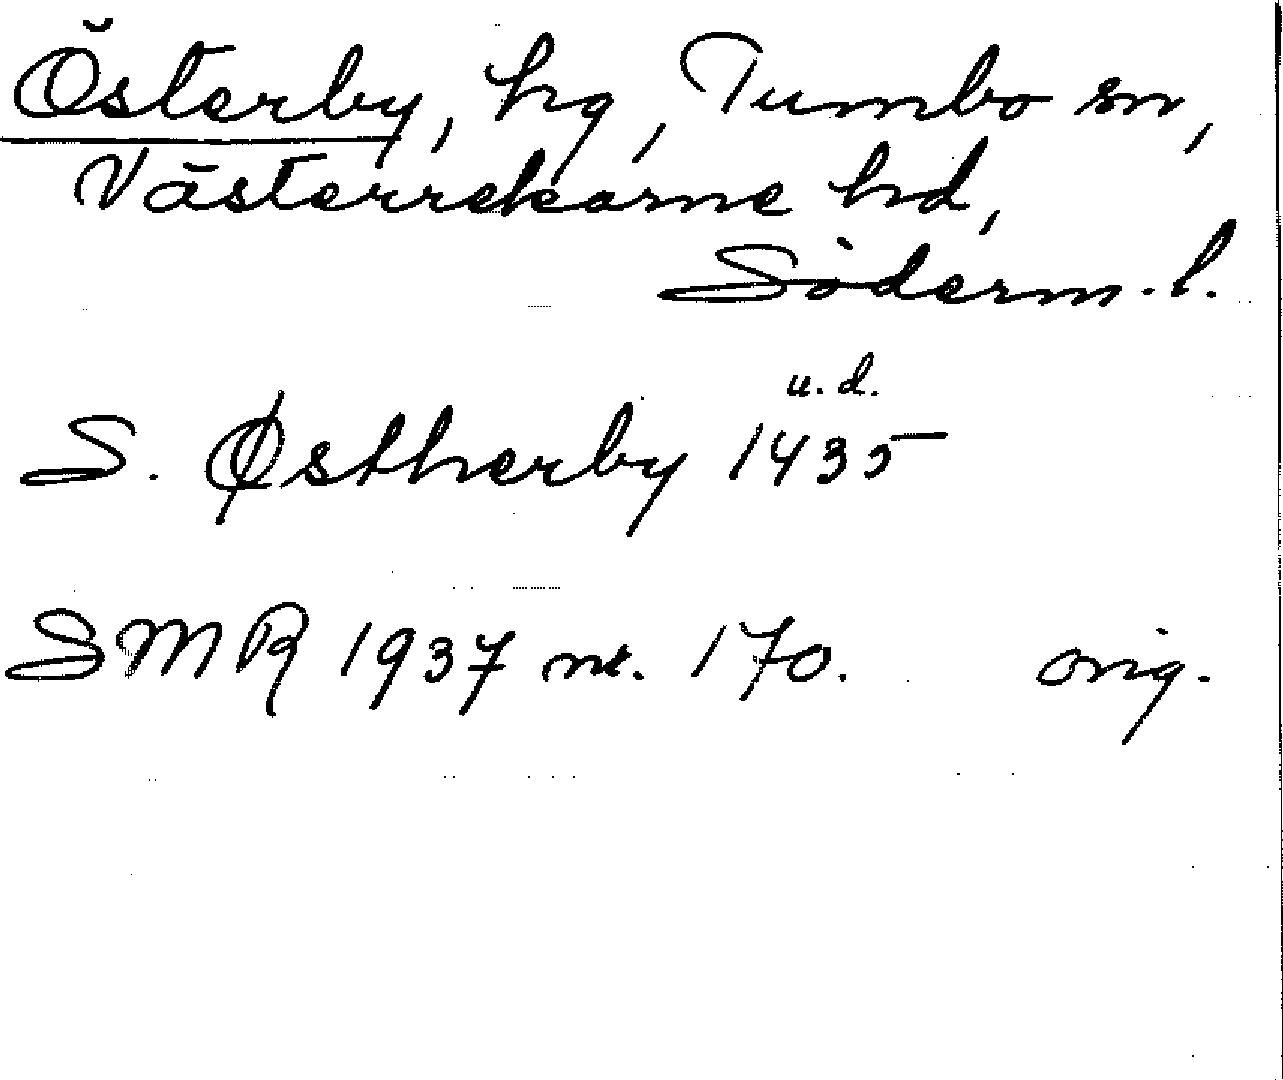 Österby, hg, Tumbo sn,
Västerrekarne hd,
Söderm. l.
u. d.
S. Østherby 1435
SMR 1937 nr. 170. orig.